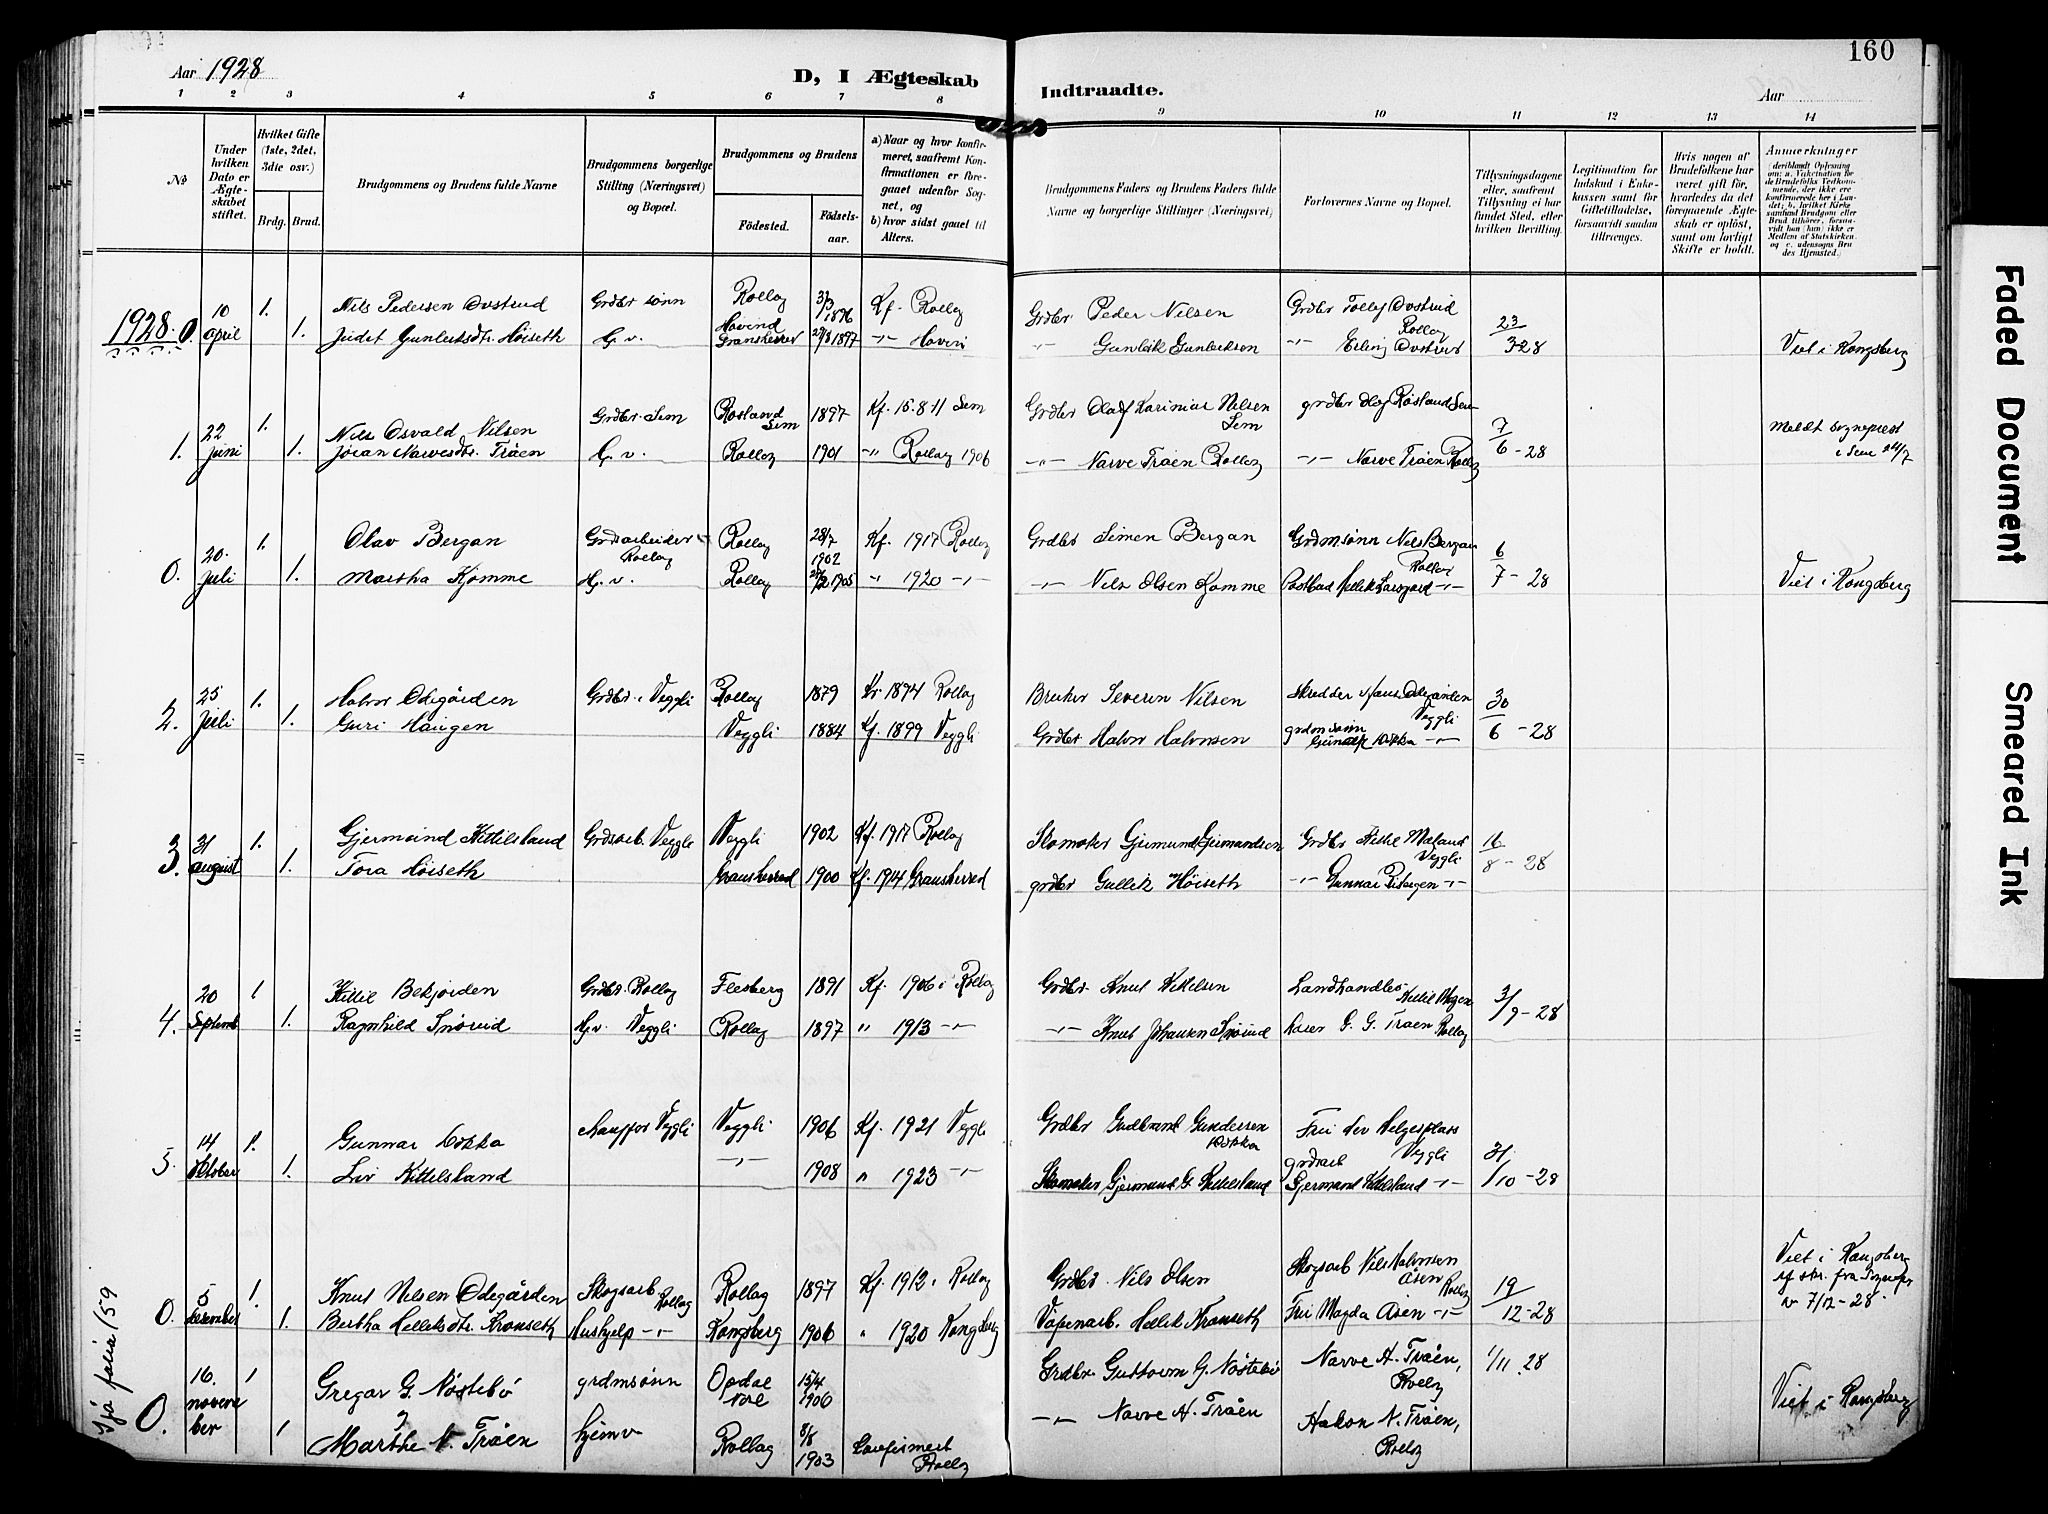 160
Aar 1928
D, I Ægteskab
Indtraadte.
Aar
1 2 3 4 5 6 7 8 9 10 11 12 13 14
№
Under hvilken Dato er Ægteskabet stiftet.
Hvilket Gifte (1ste, 2det, 3die osv.)
Brdg. Brud.
Brudgommens og Brudens fulde Navne
Brudgommens borgerlige Stilling (Næringsvei) og Bopæl.
Brudgommens og Brudens
Fødested.
Fødselsaar.
a) Naar og hvor konfirmeret, saafremt Konfirmationen er foregaaet udenfor Sognet, og
b) hvor sidst gaaet til Alters.
Brudgommens Faders og Brudens Faders fulde Navne og borgerlige Stillinger (Næringsvei)
Forlovernes Navne og Bopæl.
Tillysningsdagene eller, saafremt Tillysning ei har fundet Sted, efter hvilken Bevilling.
Legitimation for Indskud i Enkekassen samt for Giftetilladelse, forsaavidt saadan tiltrænges.
Hvis nogen af Brudefolkene har været gift før, hvorledes da det foregaaende Ægteskab er opløst, samt om lovligt Skifte er holdt.
Anmærkninger
(deriblandt Oplysning om: a. Vakcination for de Brudefolks Vedkommende, der ikke ere konfirmerede her i Landet; b. hvilket Kirkesamfund Brudgom eller Brud tilhører, forsaavidt han (hun) ikke er Medlem af Statskirken, og c. udensogns Brudes Hjemsted.)
1928. 0. 10 April 1. Nils Pedersen Ovstrud Grdbr sønn Rollag 3/3 1896 Kf. Rollag Grdbr. Peder Nilsen Grdbr Tollef Ovstrud Rollag 23/3 28
1. Judet Gunleiksdtr. Höiseth H. v. Hovind Gransherred 1897 -"- Hovin -"- Gunleik Gunleiksen -"- Erling Ovstrud Viet i Kongsberg
1. 22 Juni 1. Nils Osvald Nilsen Grdbr. Sem Rosland Sem 1897 Kf. 15.8.11 Sem Grdbr Olaf Karinius Nilsen Sem grdbr Olaf Røsland Sem 7/6 - 28 Meldt sogneprest i Sem 24/7
1. Jöran Narvesdtr. Tråen H. v. Rollag 1901 -"- Rollag 1906 -"- Narve Tråen Rollag -"- Narve Tråen Rollag
0. 20. Juli 1. Olav Bergan Grdsarbeider Rollag Rollag 28/7 1902 Kf. 1917 Rollag Grdbr Simen Bergan Grdmsönn Nils Bergan Rollag 6/7 - 28
1. Martha Kjömme H. v. Rollag 1905 " 1920 -"- -"- Nils Olsen Kjomme -"- Viet i Kongsberg
2. 25 Juli 1. Halvor Ödegården Grdbr. i Veggli Rollag 1879 Kf. 1894 Rollag Bruker Severin Nilsen skredder Hans Ödegården Veggli 30/6 - 28
1. Guri Haugen Veggli 1884 Kf. 1899 Veggli Grdbr Halvor Halvorsen grdmsönn Gunulf Dokka -"-
3. 31 august 1. Gjermund Kittilsland Grdsarb. Veggli Veggli 1902 Kf. 1917 Rollag Skomaker Gjermund Gjermundsen Grdbr Kittil Mæland Veggli 16/8 - 28
1. Tora Höiseth Gransherred 1900 Kf. 1914 Gransherred grdbr Gullik Höiseth -"- Gunnar -"-
4. 20 Septemb 1 Kittil Bekjorden Grdbr. Rollag Flesberg 1891 Kf. 1906 i Rollag Grdbr. Knut Kittelsen Landhandler Kittil 3/9 - 28
1. Ragnhild Snörud H. v. Veggli Rollag 1897 " 1913 -"- -"- Knut Johansen Snörud G. G. Traaen Rollag
5. 14 Oktober 1. Gunnar Dokka Chauffør Veggli Veggli 1906 Kf. 1921 Veggli Grdbr Gudbrand Gundersen Dokka Fru Liv Helgesplass Veggli 31/10 - 28
1. Liv Kittilsland -"- 1908 " 1923 -"- Skomaker Gjermund G. Kittilsland grdsarb Gjermund Kittilsland -"-
0. 5 desember 1. Knut Nilsen Ödegården Skogsarb Rollag Rollag 1897 Kf. 1912 i Rollag Grdbr. Nils Olsen Skogsarb Nils Halvorsen Åsen Rollag 19/12 - 28 Viet i Kongsberg
1. Bertha Helliksdtr. Kronseth Hushjelp -"- Kongsberg 1906 " 1920 Kongsberg Våpenarb. Hellik Kronseth Fru Magda Åsen -"- 7/12 - 28.
sjå folio 159
0. 16. november 1 Gregar G. Nöstebö grdmsönn Opdal Nore 15/4 1906 Grdbr. Guttorm G. Nöstebö Narve H. Tråen, Rollag 1/11 28 Viet i Kongsberg
1 Marthe N. Tråen hjemv Rollag 8/8 1903 konfirmert Rollag -"- Narve H. Tråen Hakon N. Tråen, Rollag
Faded Document
Smeared Ink